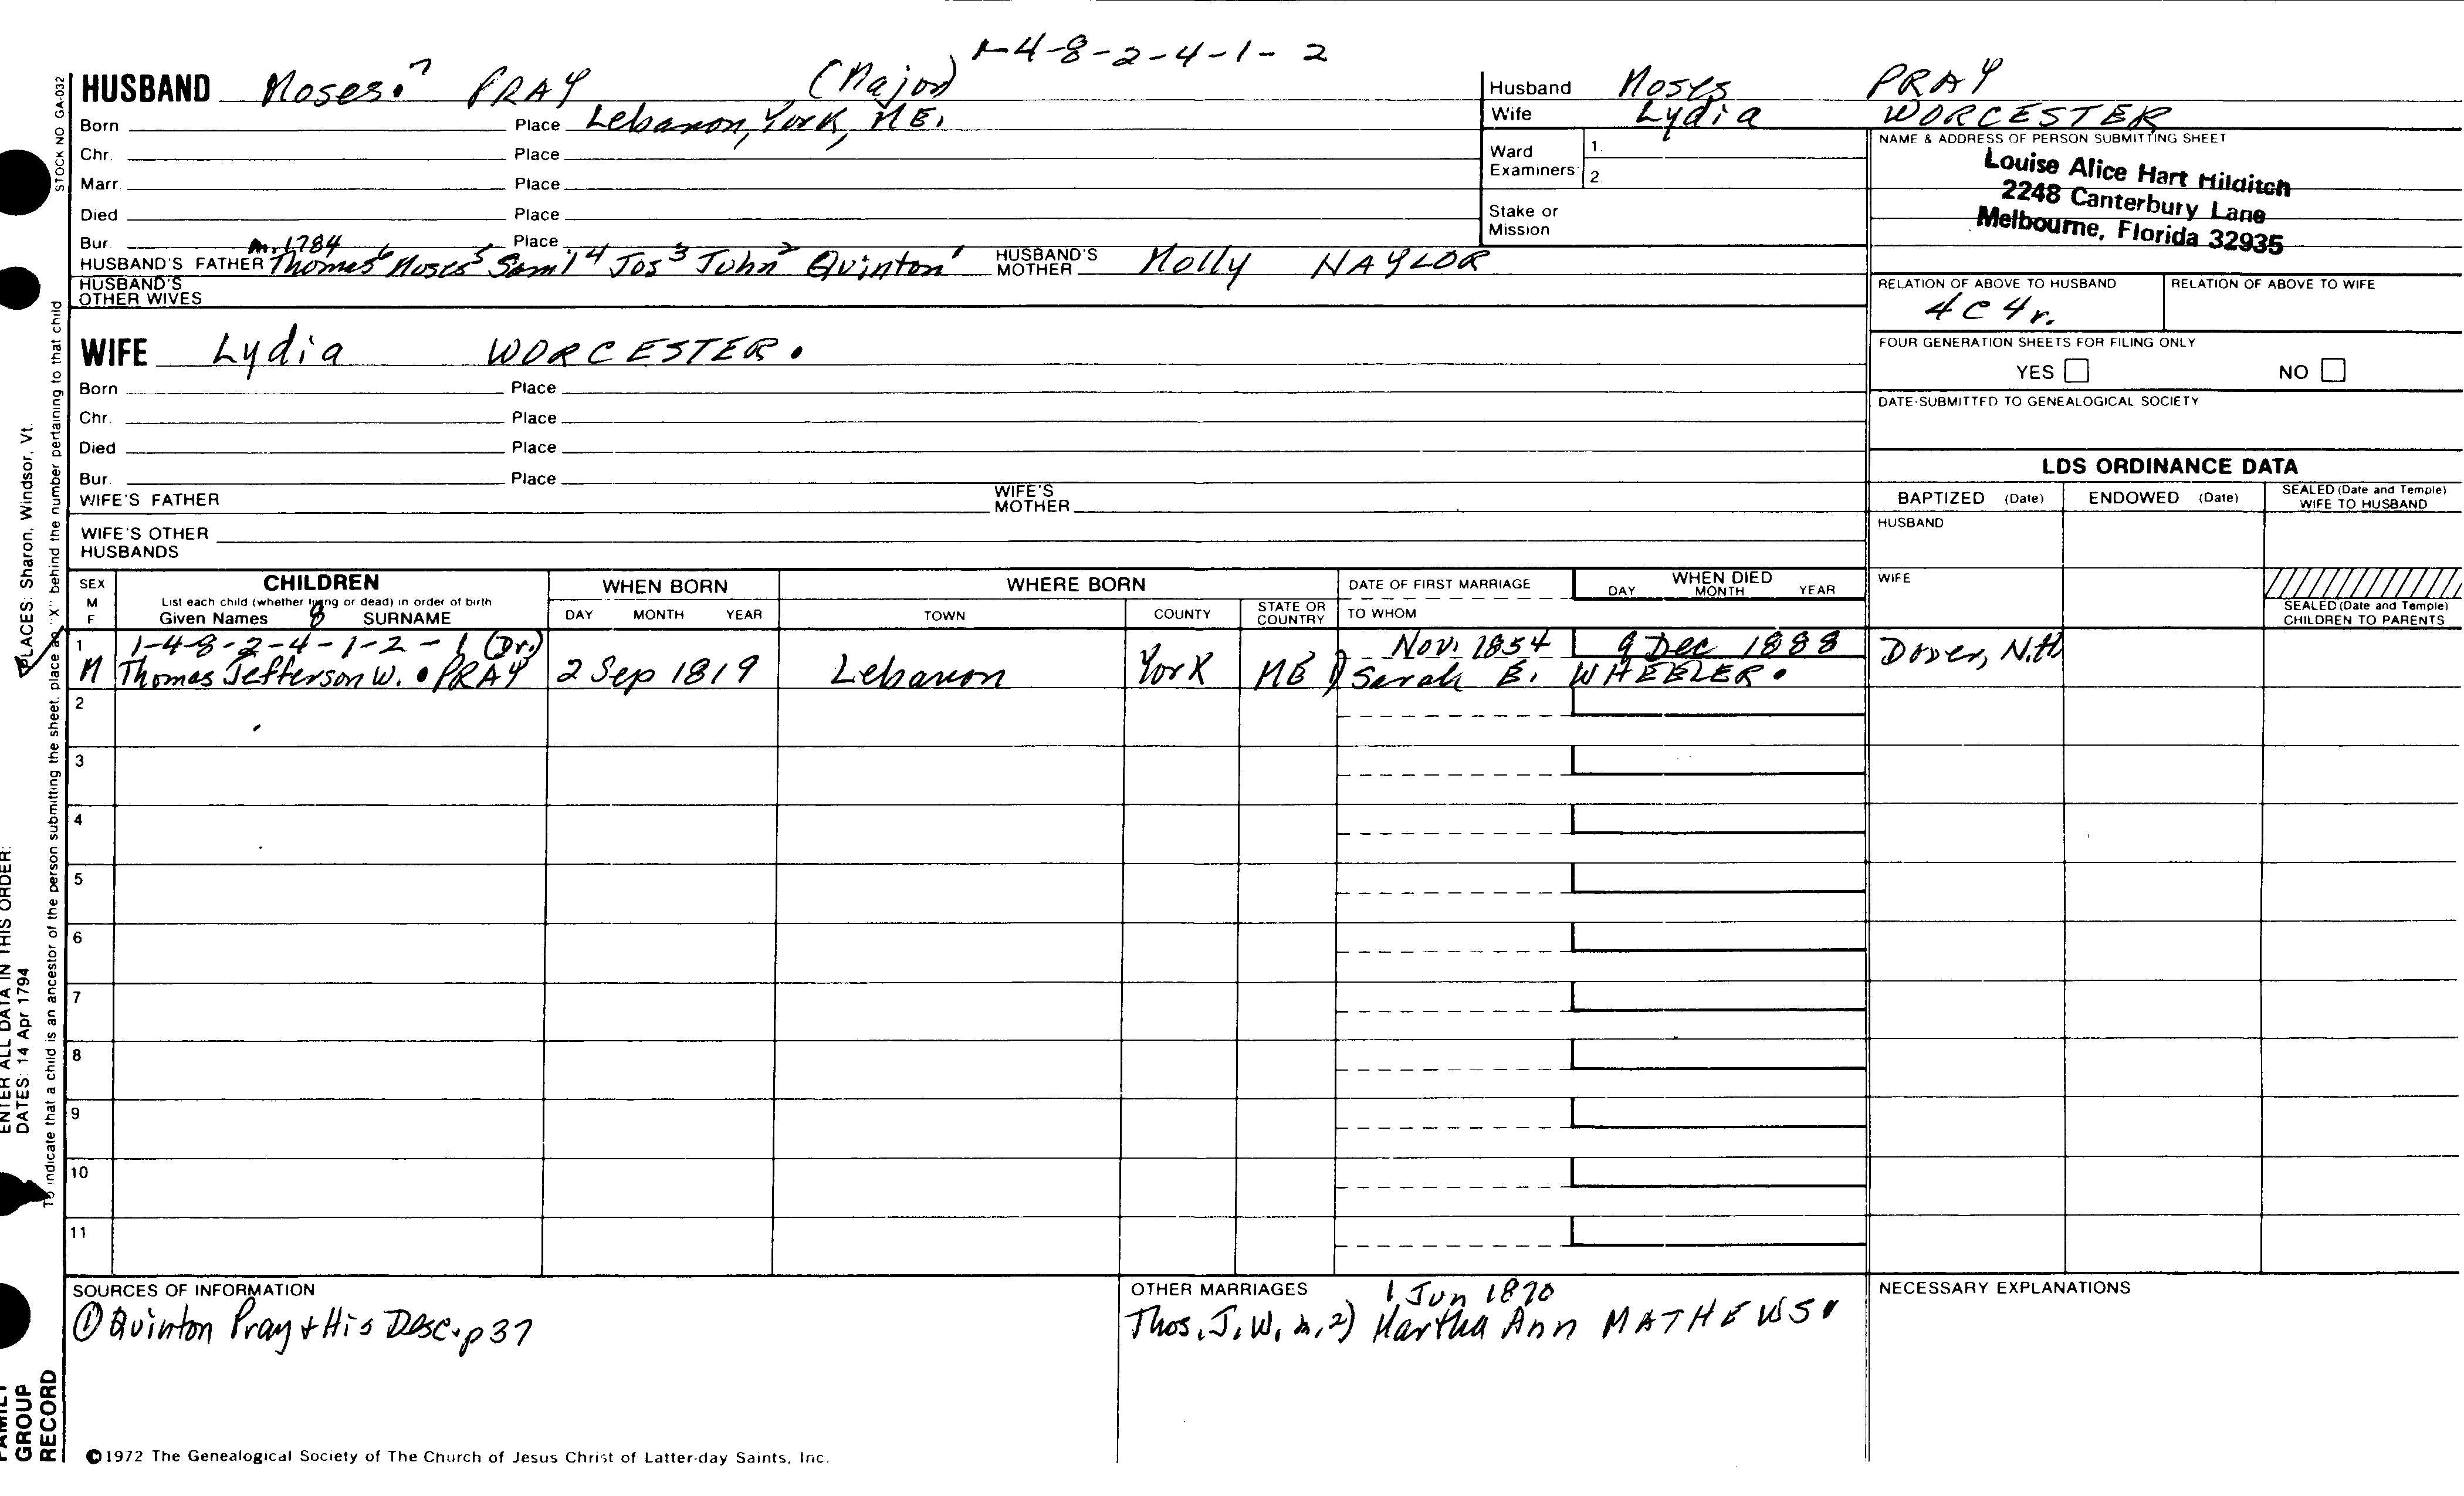 1-4-8-2-4-1-2
HUSBAND Moses.7 PRAY (Major)
Born Place Lebanon, York, ME.
Chr. Place
Marr. Place
Died Place
Bur. Place
m. 1784
HUSBAND'S FATHER Thomas6 Moses5 Sam'l4 Jos3 John2 Quinton1 HUSBAND'S MOTHER Molly NAYLOR
HUSBAND'S OTHER WIVES
WIFE Lydia WORCESTER.
Born Place
Chr. Place
Died Place
Bur. Place
WIFE'S FATHER WIFE'S MOTHER
WIFE'S OTHER HUSBANDS
Husband Moses PRAY
Wife Lydia WORCESTER
Ward Examiners: 1. 2.
Stake or Mission
NAME & ADDRESS OF PERSON SUBMITTING SHEET
Louise Alice Hart Hilditch
2248 Canterbury Lane
Melbourne, Florida 32935
RELATION OF ABOVE TO HUSBAND RELATION OF ABOVE TO WIFE
4C4r.
FOUR GENERATION SHEETS FOR FILING ONLY
YES NO
DATE SUBMITTED TO GENEALOGICAL SOCIETY
LDS ORDINANCE DATA
BAPTIZED (Date) ENDOWED (Date) SEALED (Date and Temple) WIFE TO HUSBAND
HUSBAND
WIFE
SEALED (Date and Temple) CHILDREN TO PARENTS
SEX M F CHILDREN WHEN BORN WHERE BORN DATE OF FIRST MARRIAGE WHEN DIED
List each child (whether living or dead) in order of birth
Given Names 8 SURNAME DAY MONTH YEAR TOWN COUNTY STATE OR COUNTRY TO WHOM DAY MONTH YEAR
1 1-4-8-2-4-1-2-1 (Dr.) Nov. 1854 9 Dec 1888 Dover, N.H
M Thomas Jefferson W. PRAY 2 Sep 1819 Lebanon York ME 1) Sarah E. WHEELER.
2
3
4
5
6
7
8
9
10
11
SOURCES OF INFORMATION
① Quinton Pray & His Desc. p 37
OTHER MARRIAGES
1 Jun 1870
Thos. J. W. m. 2) Martha Ann MATHEWS
NECESSARY EXPLANATIONS
©1972 The Genealogical Society of The Church of Jesus Christ of Latter-day Saints, Inc.
STOCK NO GA-032
To indicate that a child is an ancestor of the person submitting the sheet, place an "X" behind the number pertaining to that child
PLACES: Sharon, Windsor, Vt.
ENTER ALL DATA IN THIS ORDER:
DATES: 14 Apr 1794
FAMILY GROUP RECORD